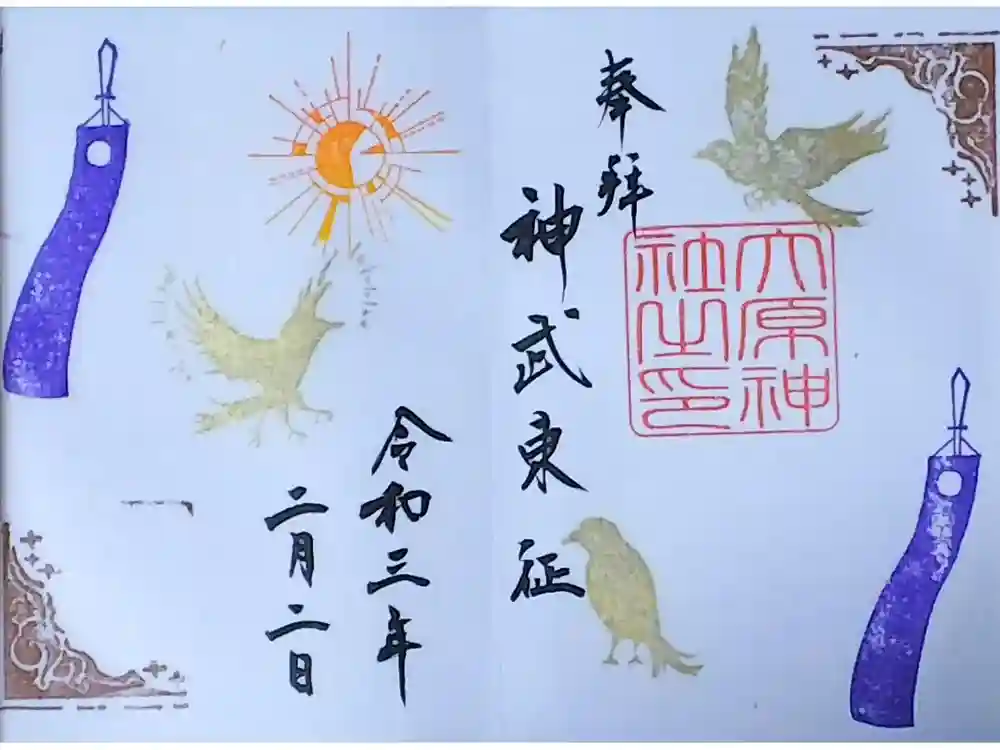 奉拝
大原神
社之印
神武東征
令和三年
二月二日